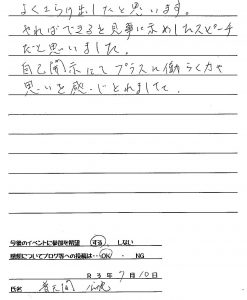 よくさらけ出したと思います。
やればできると見事に示めしたスピーチ
だと思いました。
自己開示にてプラスに働らく力や
思いを感じとれまして、
今後のイベントに参加を希望 する しない
感想についてブログ等への投稿は…OK・NG
R3年7月10日
氏名